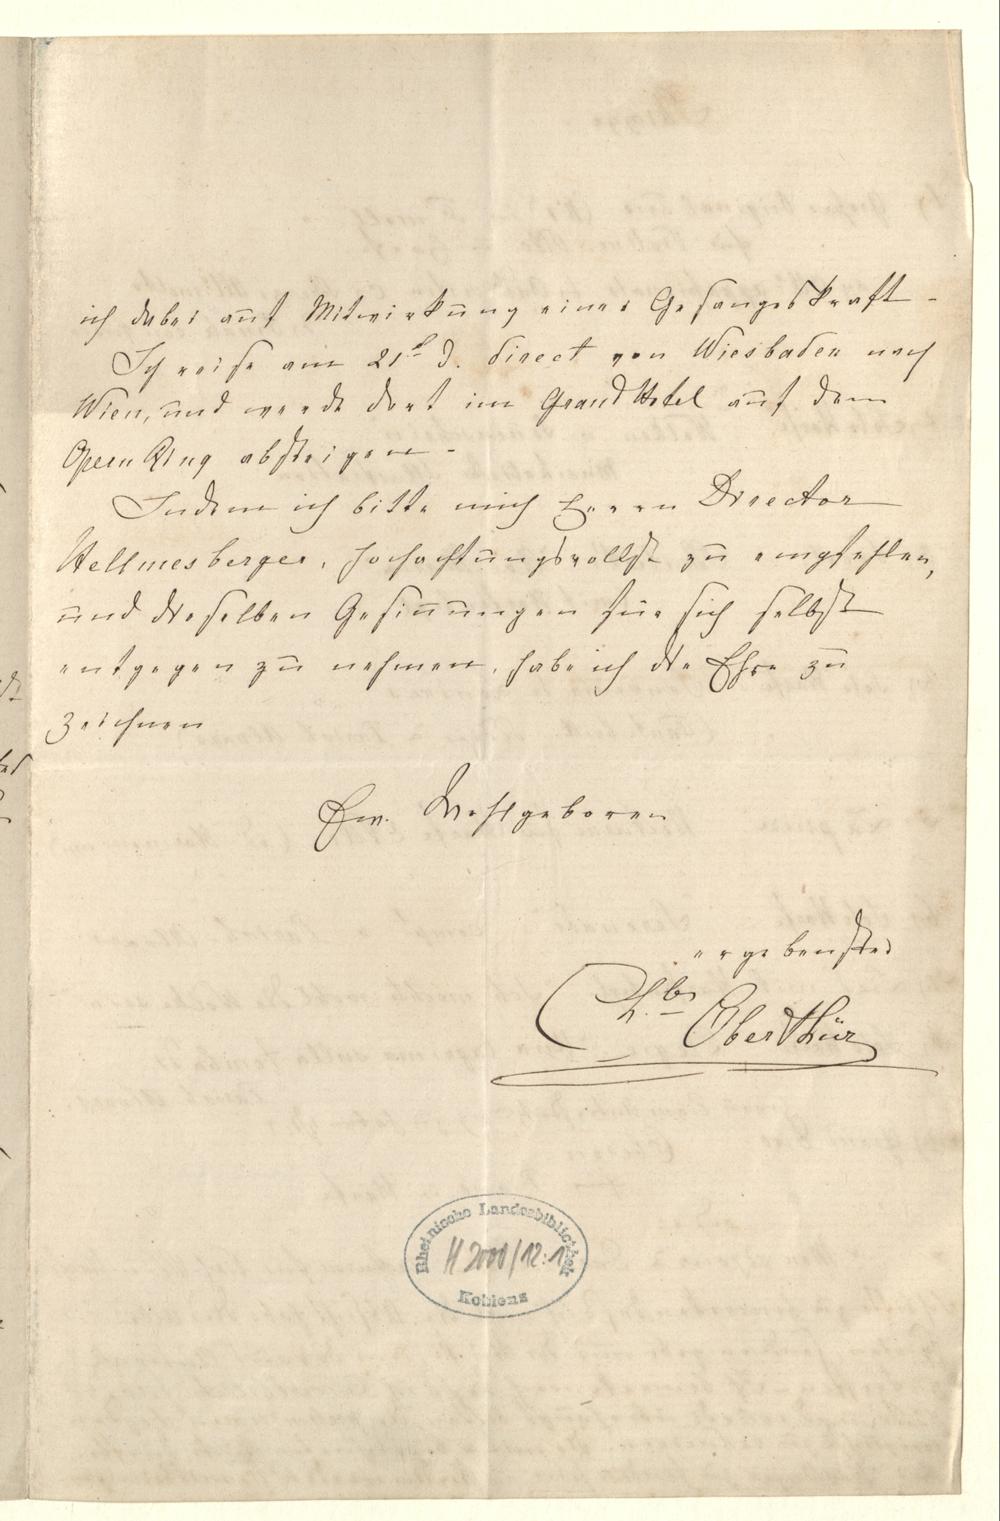 ich dabei auf Mitwirkung einer Gesangskraft -
Ich reise am 21t d. direct von Wiesbaden nach
Wien, und werde dort im Grand Hotel auf dem
Opern Ring absteigen -
Indem ich bitte mich Herrn Director
Hellmesberger, hochachtungsvollst zu empfehlen,
und dieselben Gesinnungen für sich selbst
entgegen zu nehmen, habe ich die Ehre zu
zeichnen
Ew. Wohlgeboren
ergebenster
Ch.les Oberthür
Rheinische Landesbibliothek
H 2000/12:1
Koblenz